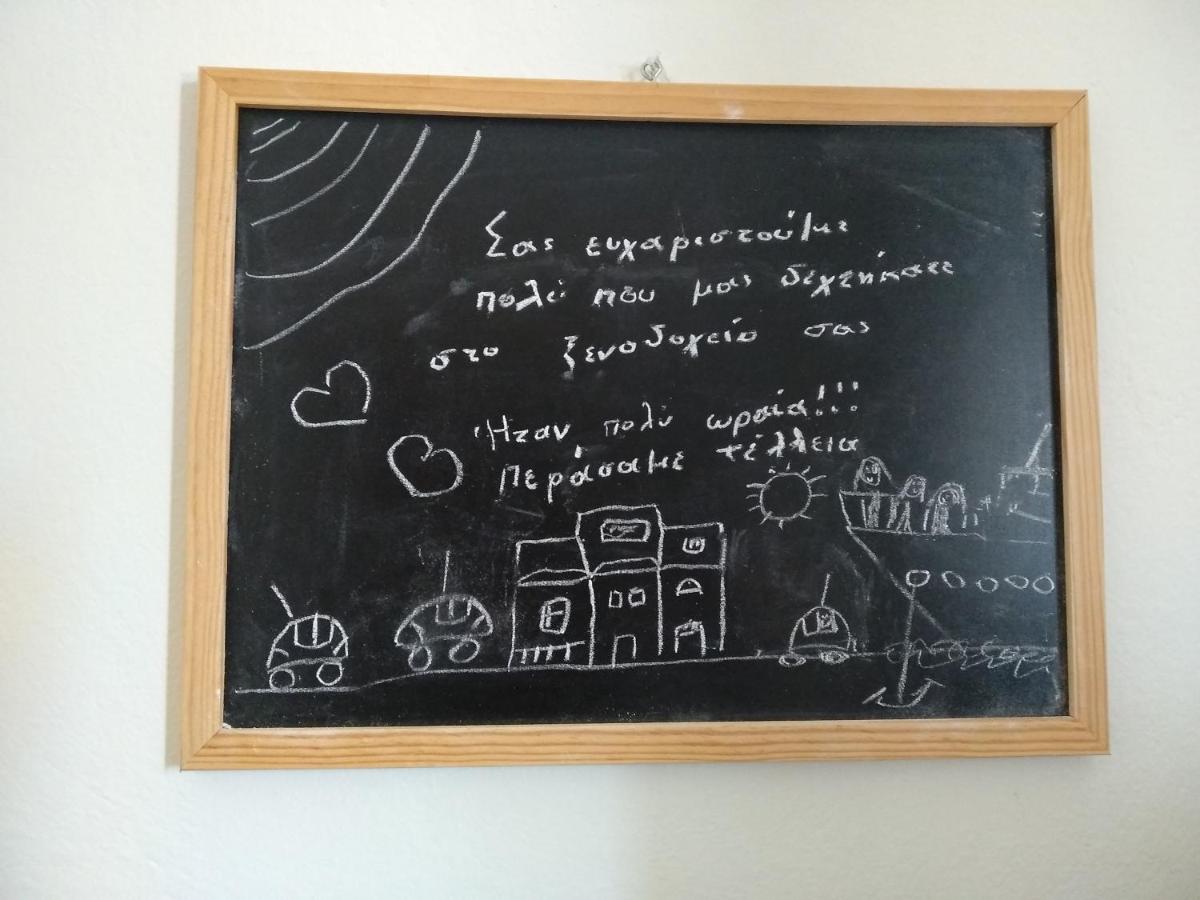 Σας ευχαριστούμε
πολύ που μας δεχτήκατε
στο ξενοδοχείο σας
Ήταν πολύ ωραία!!!
Περάσαμε τέλλεια